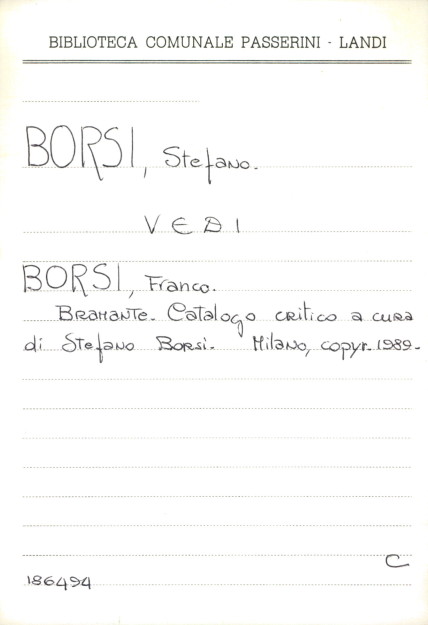 BIBLIOTECA COMUNALE PASSERINI - LANDI
BORSI, Stefano.
VEDI
BORSI, Franco.
BRAMANTE. Catalogo critico a cura
di Stefano Borsi. Milano, copyr. 1989.
C
186494